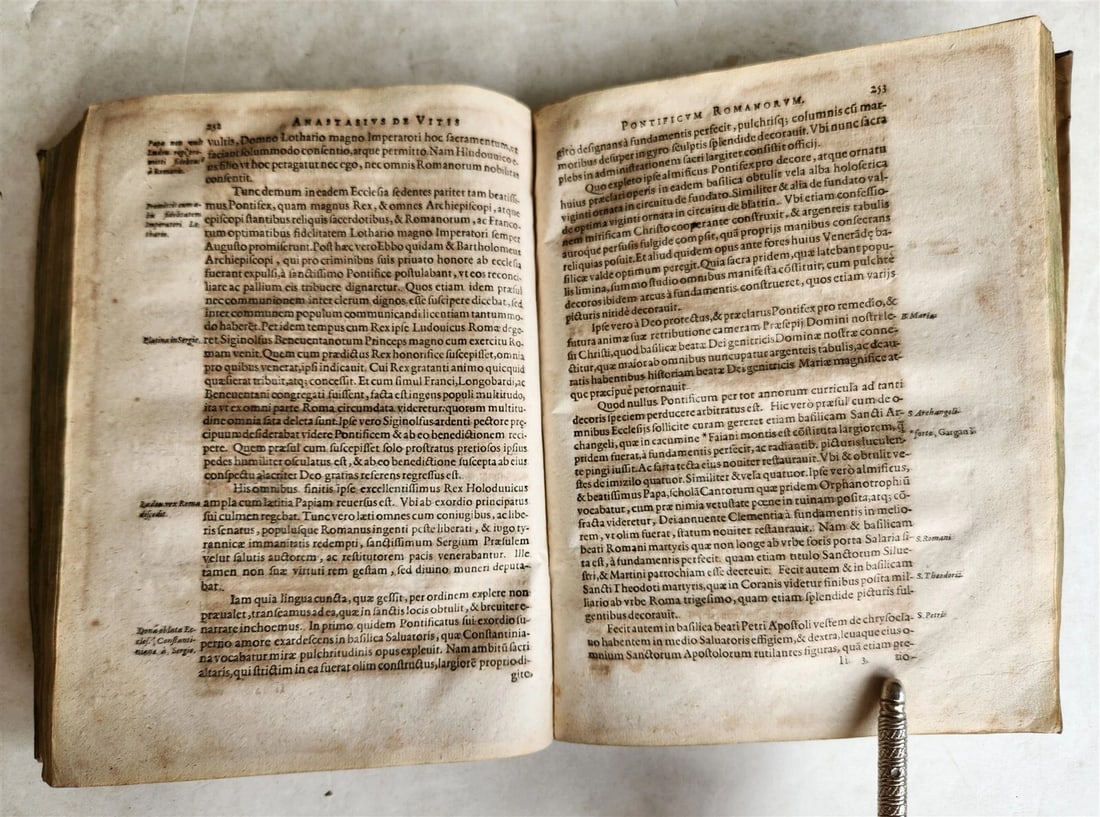 252
ANASTASIVS DE VITIS
vultis, Domno Lothario magno Imperatori hoc sacramentum, vt
faciant solummodo consentio, atque permitto. Nam Hludouuico e-
ius filio vt hoc peragatur nec ego, nec omnis Romanorum nobilitas
consentit.
Tunc demum in eadem Ecclesia sedentes pariter tam beatissi-
mus Pontifex, quam magnus Rex, & omnes Archiepiscopi, atque
episcopi stantibus reliquis sacerdotibus, & Romanorum, ac Franco-
rum optimatibus fidelitatem Lothario magno Imperatori semper
Augusto promiserunt. Post hæc vero Ebbo quidam & Bartholomeus
Archiepiscopi, qui pro criminibus suis priuato honore ab ecclesia
fuerant expulsi, à sanctissimo Pontifice postulabant, vt eos reconci-
liare ac pallium eis tribuere dignaretur. Quos etiam idem præsul
nec communionem inter clerum dignos esse suscipere dicebat, sed
inter communem populum communicandi licentiam tantummo-
do haberēt. Per idem tempus cum Rex ipse Ludouicus Romæ dege-
ret Siginolfus Beneuentanorum Princeps magno cum exercitu Ro-
mam venit. Quem cum prædictus Rex honorifice suscepisset, omnia
pro quibus venerat, ipsi indicauit. Cui Rex gratanti animo quicquid
quæsierat tribuit, atq; concessit. Et cum simul Franci, Longobardi, ac
Beneuentani congregati fuissent, facta est ingens populi multitudo,
ita vt ex omni parte Roma circumdata videretur: quorum multitu-
dine omnia sata deleta sunt. Ipse vero Siginolfus ardenti pectore præ-
cipuum desiderabat videre Pontificem & ab eo benedictionem reci-
pere. Quem præsul cum suscepisset solo prostratus pretiosos ipsius
pedes humiliter osculatus est, & ab eo benedictione suscepta ab eius
conspectu alacriter Deo gratias referens regressus est.
His omnibus finitis ipse excellentissimus Rex Holoduuicus
ampla cum lætitia Papiam reuersus est. Vbi ab exordio principatus
sui culmen regebat. Tunc vero læti omnes cum coniugibus, ac libe-
ris senatus, populusque Romanus ingenti peste liberati, & iugo ty-
rannicæ immanitatis redempti, sanctissimum Sergium Præsulem
velut salutis auctorem, ac restitutorem pacis venerabantur. Ille
tamen non suæ virtuti rem gestam, sed diuino muneri deputa-
bat.
Iam quia lingua cuncta, quæ gessit, per ordinem explere non
præualet, transeamus ad ea, quæ in sanctis locis obtulit, & breuiter e-
narrare inchoemus. In primo quidem Pontificatus sui exordio su-
perno amore exardescens in basilica Saluatoris, quæ Constantinia-
na vocabatur miræ pulchritudinis opus expleuit. Nam ambitū sacri
altaris, qui strictim in ea fuerat olim constructus, largiorē proprio di-
gito,
Platina in Sergio.
Eadem rex Roma
discedit.
Dona oblata Ec-
clesiæ Constanti-
nianæ à Sergio.
253
PONTIFICVM ROMANORVM.
gito designans à fundamentis perfecit, pulchrisq; columnis cū mar-
moribus desuper in gyro sculptis splendide decorauit. Vbi nunc sacra
plebs in administrationem sacri largiter consistit officij.
Quo expleto ipse almificus Pontifex pro decore, atque ornatu
huius præclari operis in eadem basilica obtulit vela alba holoserica
viginti ornata in circuitu de fundato. Similiter & alia de fundato val-
de optima viginti ornata in circuitu de blattin. Vbi etiam confessio-
nem mirificam Christo cooperante construxit, & argenteis tabulis
auroque perfusis fulgide compsit, quā proprijs manibus consecrans
reliquias posuit. Et aliud quidem opus ante fores huius Venerādę ba-
silicæ valde optimum peregit. Quia sacra pridem, quæ latebant popu-
lis limina, summo studio omnibus manifesta cōstituit, cum pulchrè
decoros ibidem arcus à fundamentis construeret, quos etiam varijs
picturis nitidè decorauit.
Ipse vero à Deo protectus, & præclarus Pontifex pro remedio, &
futura animæ suæ retributione cameram Præsepij Domini nostri Ie-
su Christi, quod basilicæ beatæ Dei genitricis Dominæ nostræ conne-
ctitur, quæ maior ab omnibus nuncupatur argenteis tabulis, ac deau-
ratis habentibus historiam beatæ Dei genitricis Mariæ magnifice at-
que præcipuè perornauit.
Quod nullus Pontificum per tot annorum curricula ad tanti
decoris speciem perducere arbitratus est. Hic vero præsul cum de o-
mnibus Ecclesijs sollicite curam gereret etiam basilicam Sancti Ar-
changeli, quæ in cacumine *Faiani montis est cōstituta largiorem, q̄
pridem fuerat, à fundamentis perfecit, ac radiantib. picturis luculen-
te pingi iussit. Ac sarta tecta eius nouiter restaurauit. Vbi & obtulit ve-
stes de imizilo quatuor. Similiter & vela quatuor. Ipse vero almificus,
& beatissimus Papa, scholā Cantorum quæ pridem Orphanotrophiū
vocabatur, cum præ nimia vetustate pœne in ruinam posita, atq; cō-
fracta videretur, Dei annuente Clementia à fundamentis in melio-
rem, vt olim fuerat, statum nouiter restaurauit. Nam & basilicam
beati Romani martyris quæ non longe ab vrbe foris porta Salaria si-
ta est, à fundamentis perfecit. quam etiam titulo Sanctorum Silue-
stri, & Martini patrochiam esse decreuit. Fecit autem & in basilicam
Sancti Theodoti martyris, quæ in Coranis videtur finibus posita mil-
liario ab vrbe Roma trigesimo, quam etiam splendide picturis ful-
gentibus decorauit.
Fecit autem in basilica beati Petri Apostoli vestem de chrysocla-
uo habentem in medio Saluatoris effigiem, & dextra, leuaque eius o-
mnium Sanctorum Apostolorum rutilantes figuras, quā etiam pre-
Ii 3 tio-
B. Mariæ
S. Archangeli.
*forte, Gargani.
S. Romani
S. Theodorii
S. Petri